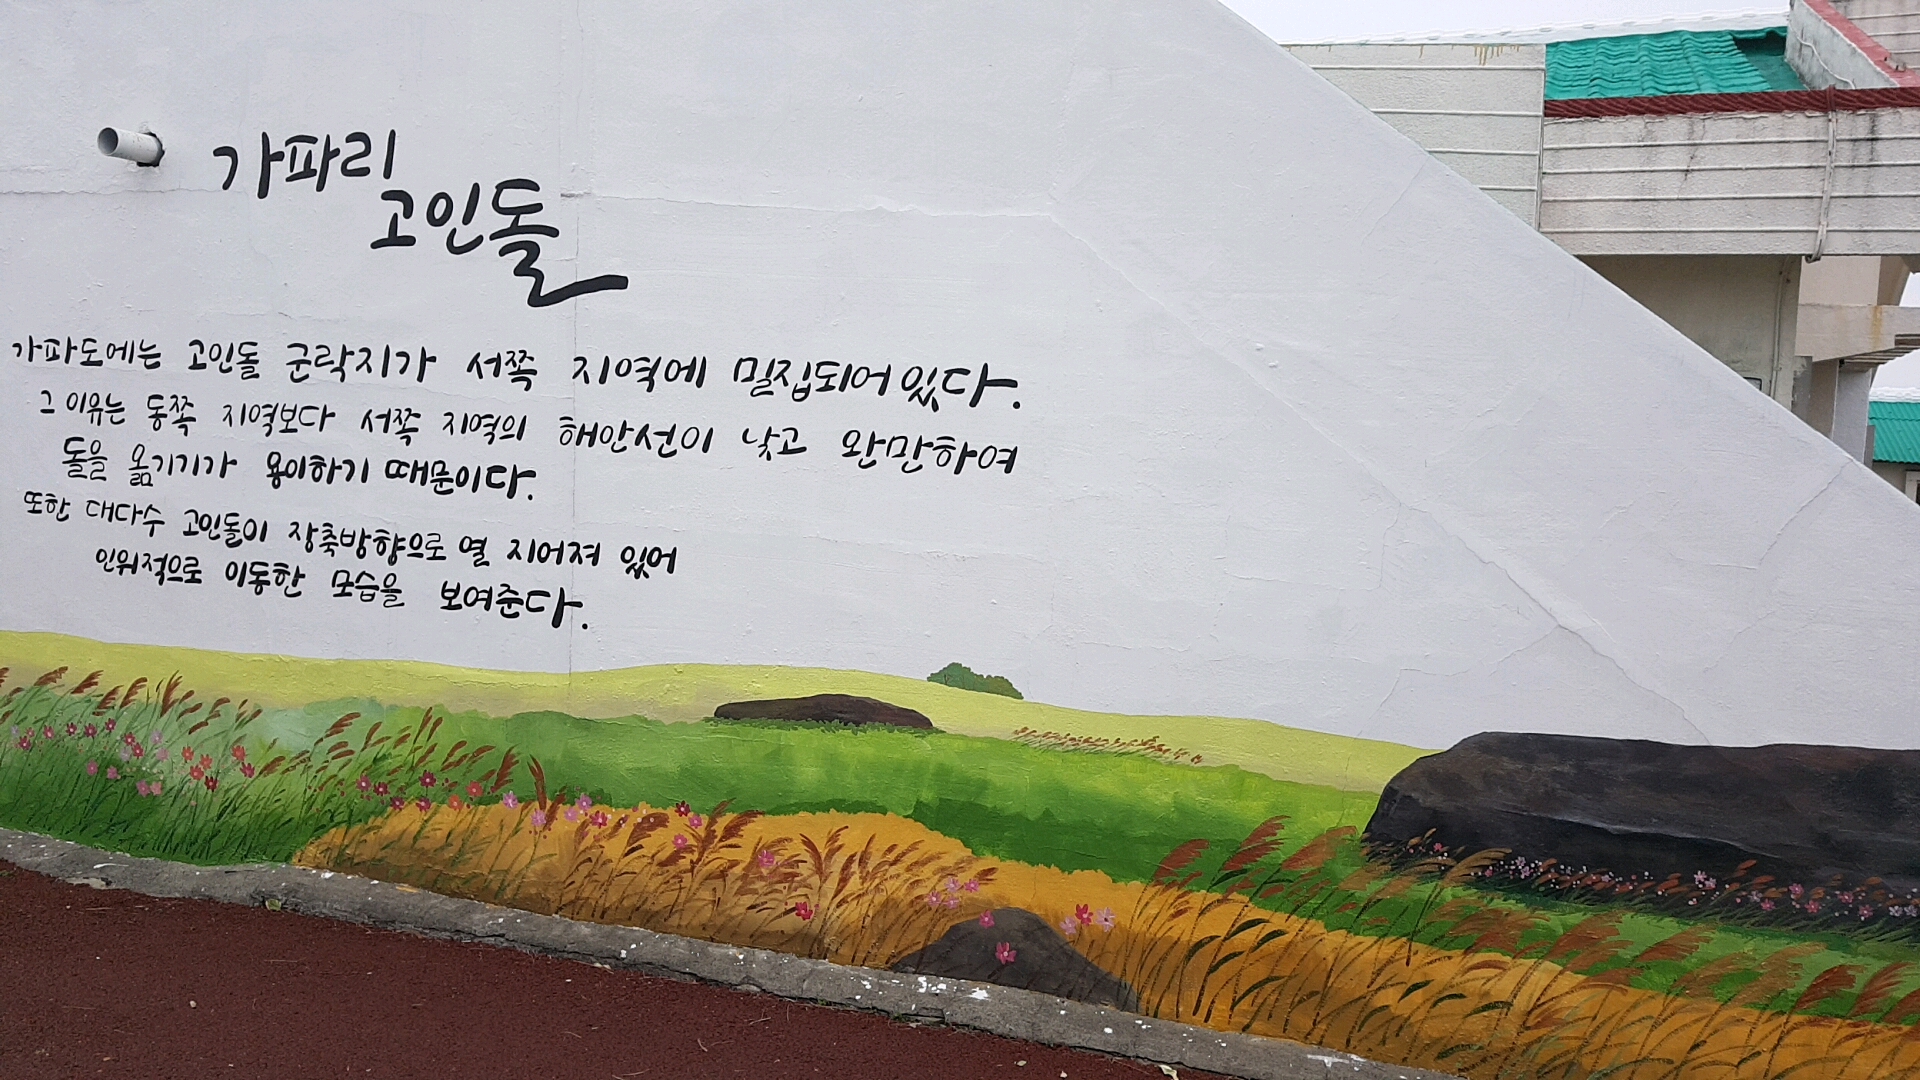 가파리
고인돌
가파도에는 고인돌 군락지가 서쪽 지역에 밀집되어 있다.
그 이유는 동쪽 지역보다 서쪽 지역의 해안선이 낮고 완만하여
돌을 옮기기가 용이하기 때문이다.
또한 대다수 고인돌이 장축방향으로 열 지어져 있어
인위적으로 이동한 모습을 보여준다.